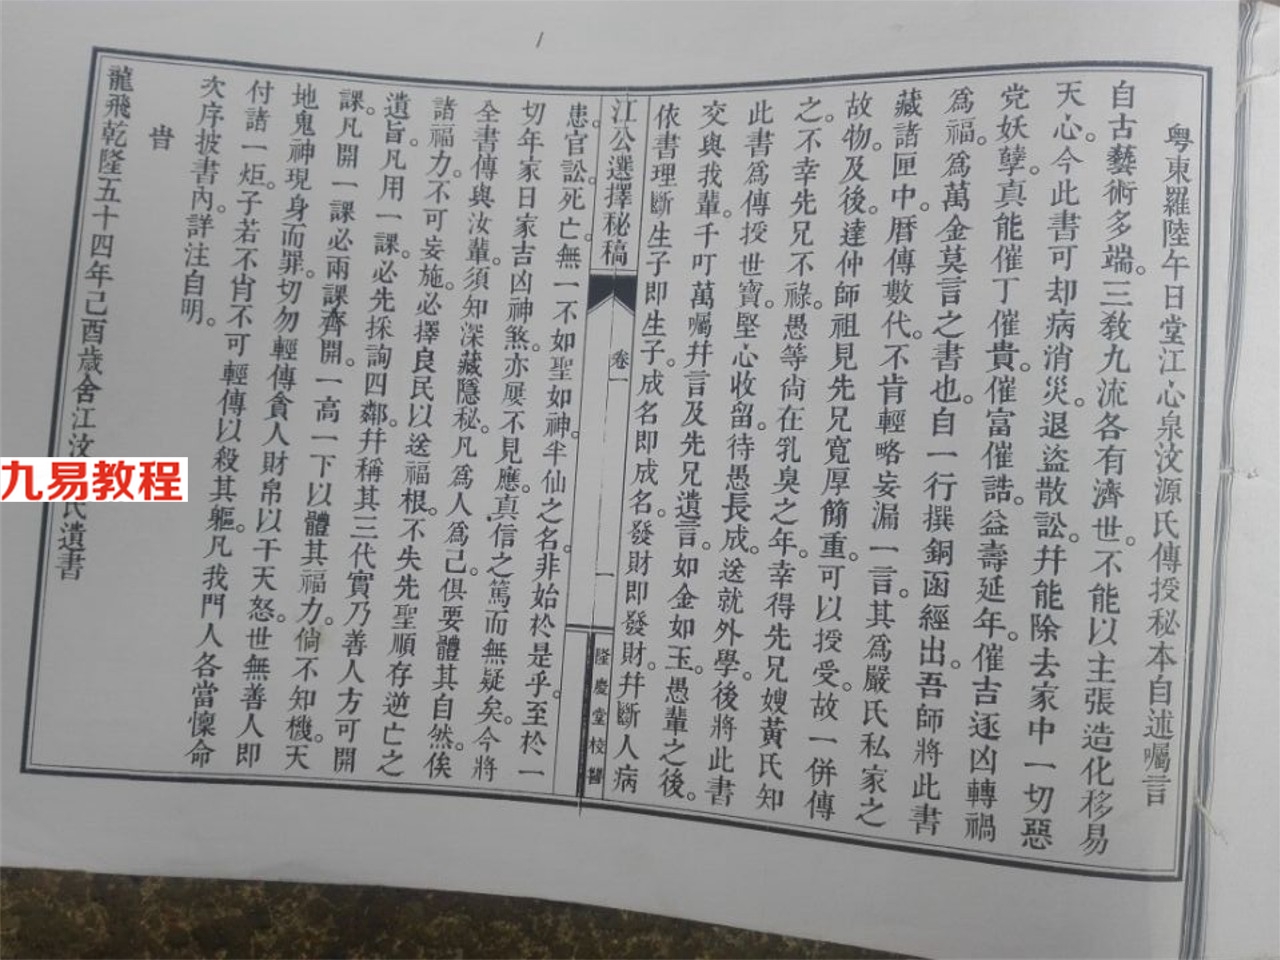 粤東羅陸午日堂江心泉汶源氏傳授秘本自述囑言
自古藝術多端。三敎九流各有濟世。不能以主張造化移易
天心。今此書可却病消災。退盜散訟。幷能除去家中一切惡
党妖孽。真能催丁催貴。催富催誥。益壽延年。催吉逐凶轉禍
爲福。爲萬金莫言之書也。自一行撰銅函經出。吾師將此書
藏諸匣中。曆傳數代。不肯輕略妄漏一言。其爲嚴氏私家之
故物。及後。達仲師祖見先兄寬厚簡重。可以授受。故一併傳
之。不幸先兄不祿。愚等尙在乳臭之年。幸得先兄嫂黃氏知
此書爲傳授世寶。堅心收留。待愚長成。送就外學。後將此書
交與我輩。千叮萬囑幷言及先兄遺言。如金如玉。愚輩之後。
依書理斷生子即生子。成名即成名。發財即發財。幷斷人病
江公選擇秘稿
卷一
一
隆慶堂校
患。官訟。死亡。無一不如聖如神。半仙之名。非始於是乎。至於一
切年家日家吉凶神煞。亦屢不見應。真信之篤而無疑矣。今將
全書傳與汝輩。須知深藏隱秘。凡爲人爲己。俱要體其自然。俟
諸福力。不可妄施。必擇良民以送福根。不失先聖順存逆亡之
遺旨。凡用一課。必先採詢四鄰。幷稱其三代實乃善人方可開
課。凡開一課必兩課齊開。一高一下以體其福力。倘不知機。天
地鬼神現身而罪。切勿輕傳貪人財帛以干天怒。世無善人即
付諸一炬。子若不肖不可輕傳以殺其軀。凡我門人各當懍命
次序披書內。詳注自明。
旹
龍飛乾隆五十四年己酉歲舍江汶
氏遺書
九易教程